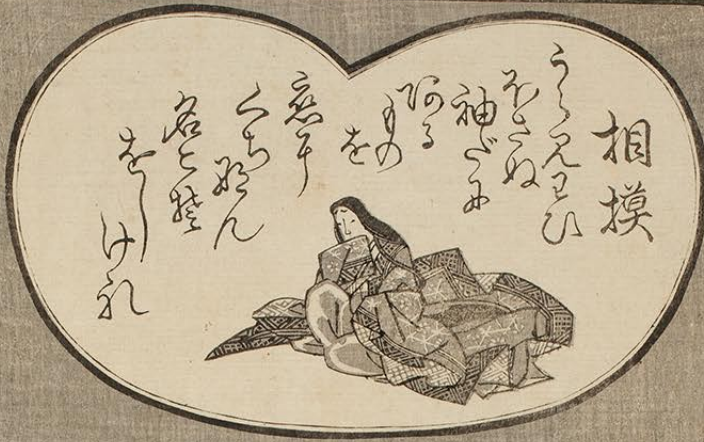 相摸
うらみわひ
ほさぬ
袖だに
ある
もの
を
恋に
くちなん
名こそ
をし
けれ